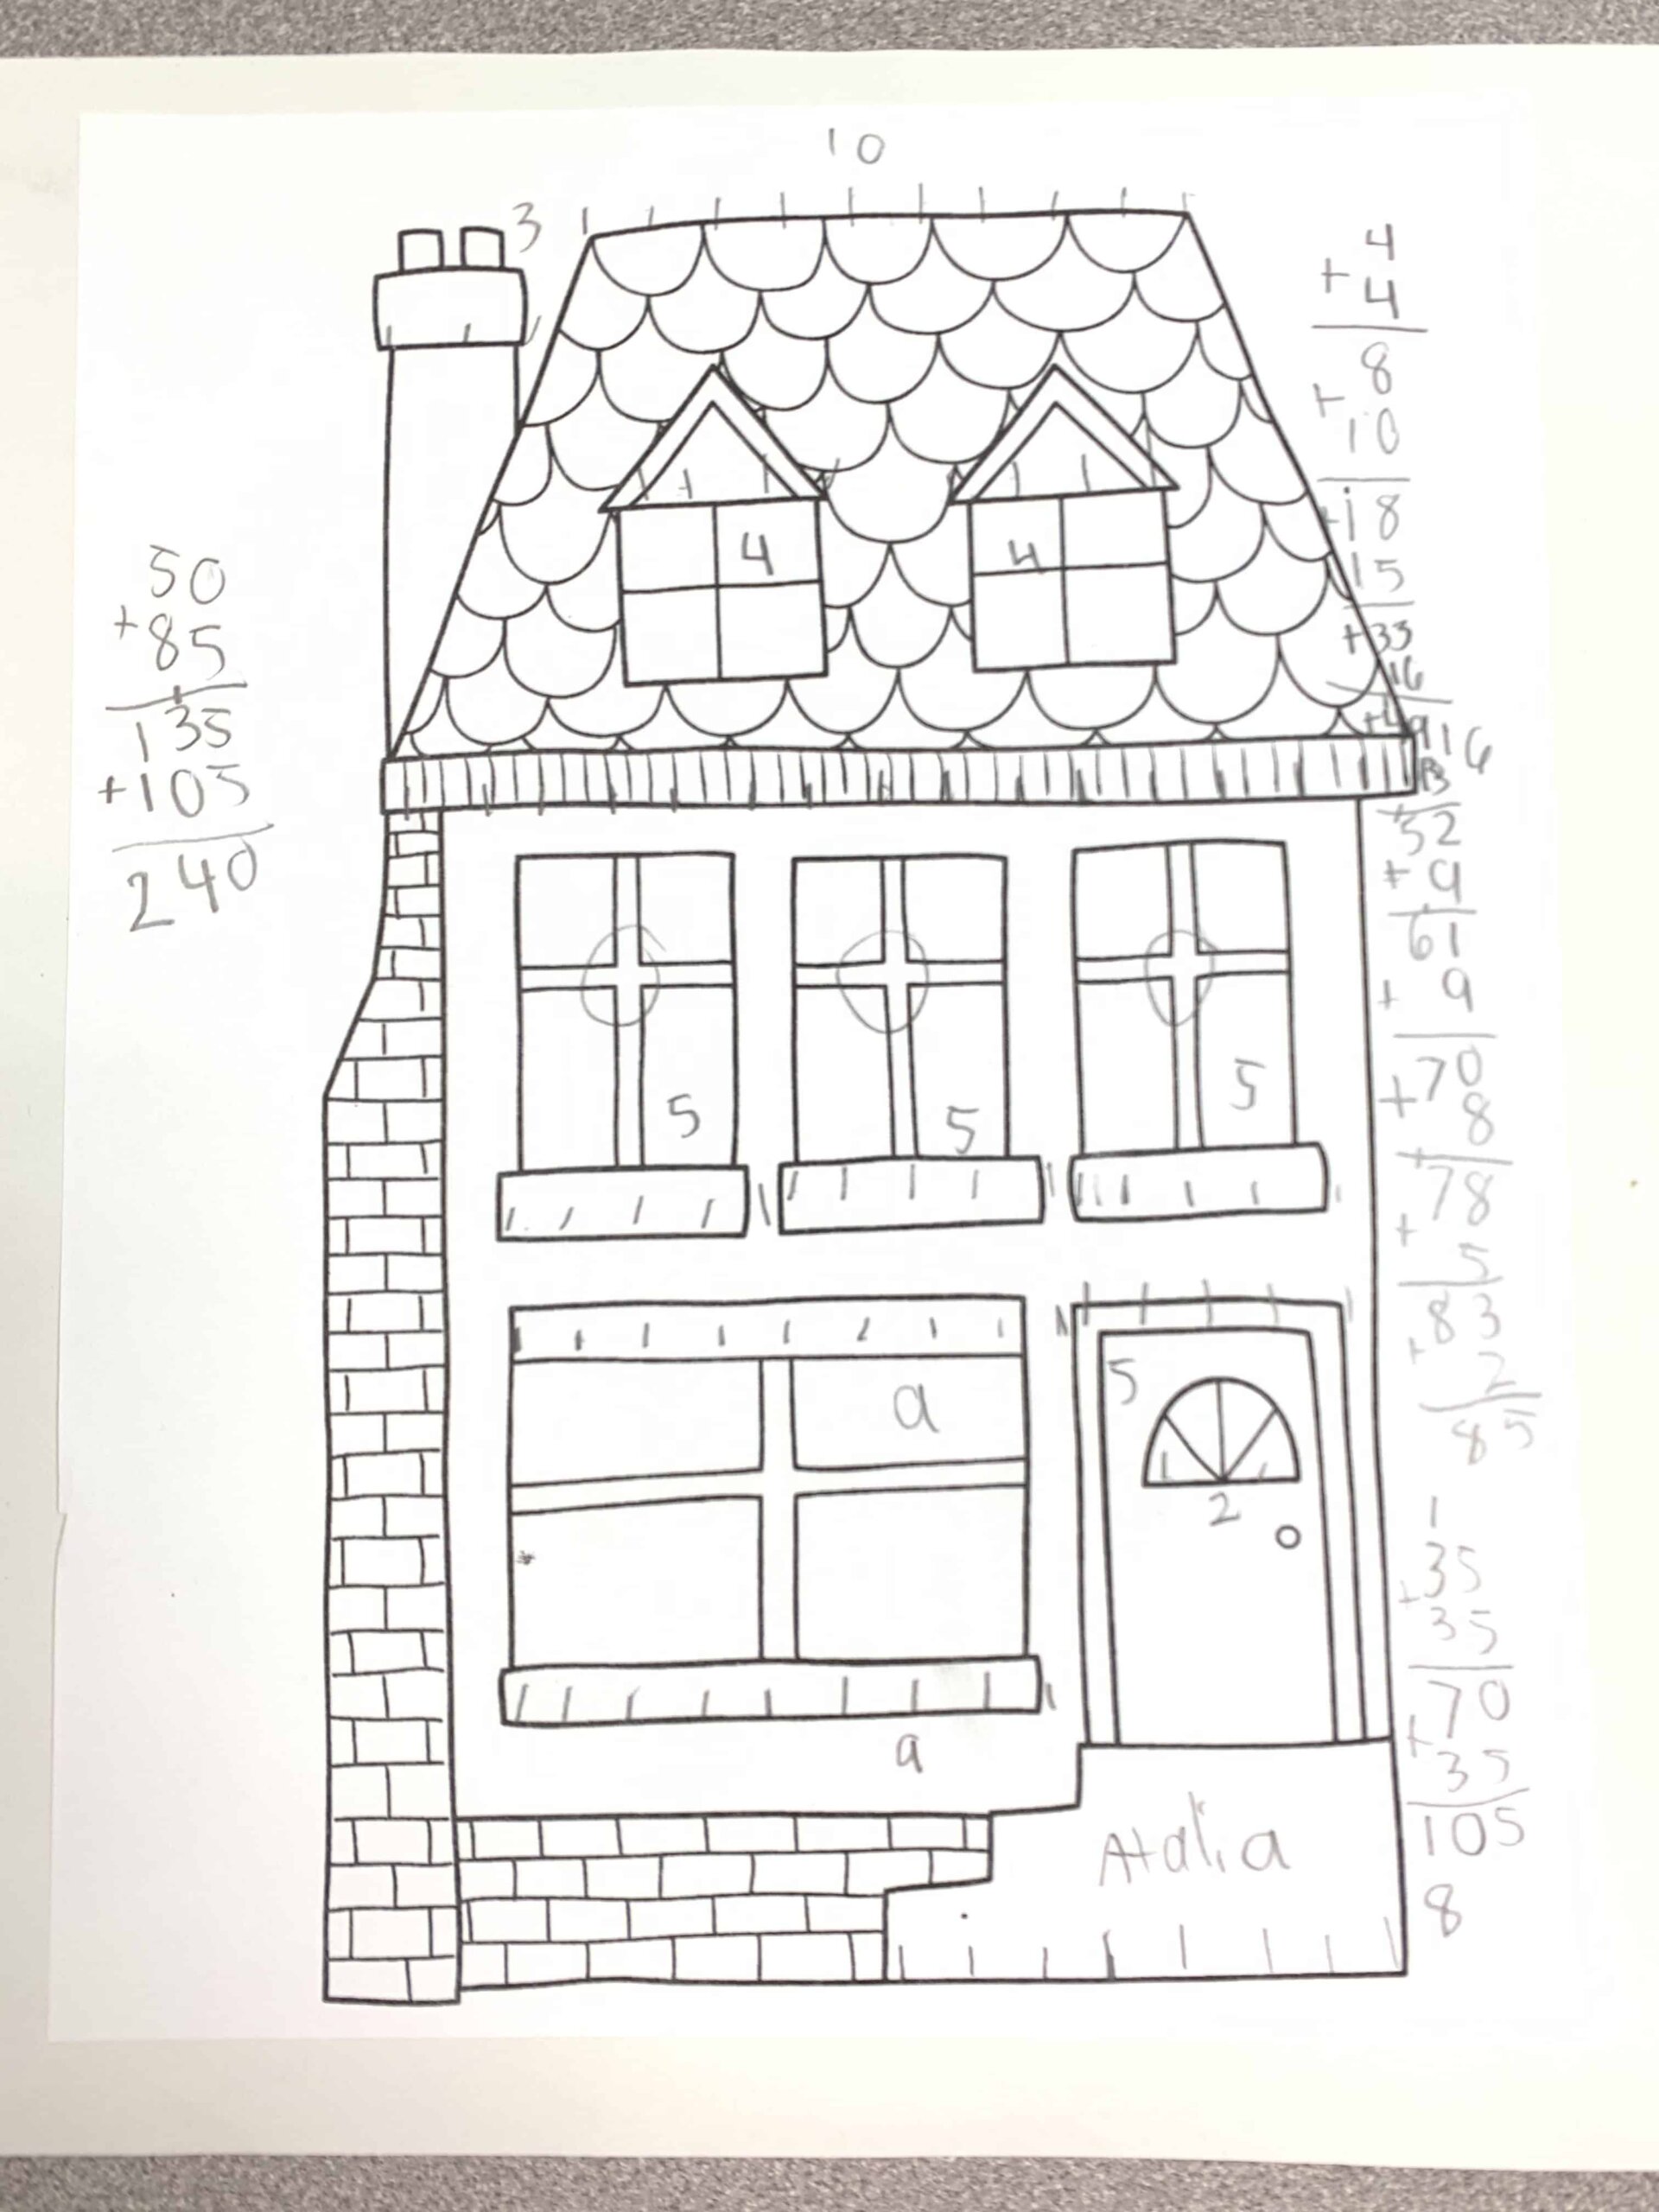 10
3
4
+ 4
8
+ 10
+18
15
+33
16
+49
16
3
+52
+ 9
61
+ 9
+70
8
+78
5
+83
2
85
4
4
50
+85
135
+105
240
5
5
5
9
5
2
9
1
+35
35
+70
35
105
8
Atalia